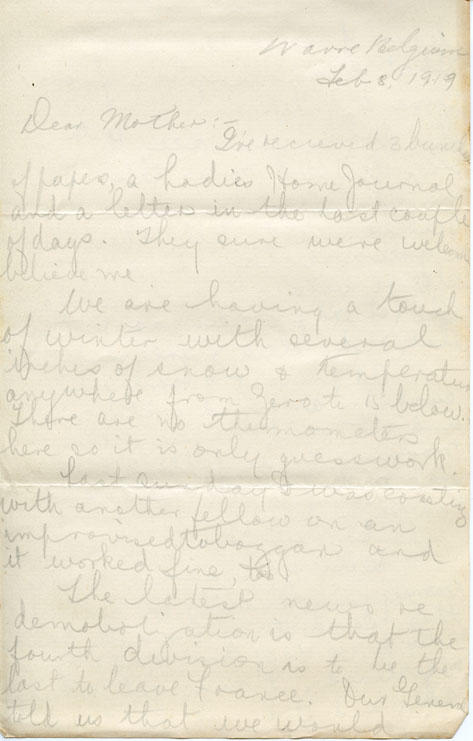 Wavre Belgium
Feb 8, 1919
Dear Mother:-
I've recieved 3 bunch
of papes, a Ladies Home Journal
and a letter in the last couple
of days. They sure were welcome
believe me
We are having a touch
of winter with several
inches of snow & temperature
anywhere from Zero to 15 below.
There are no thermometers
here so it is only guesswork.
Last sunday I was coasting
with another fellow on an
improvised toboggan and
it worked fine,
The latest news re
demobolization is that the
fourth division is to be the
last to leave France. Our General
told us that we would